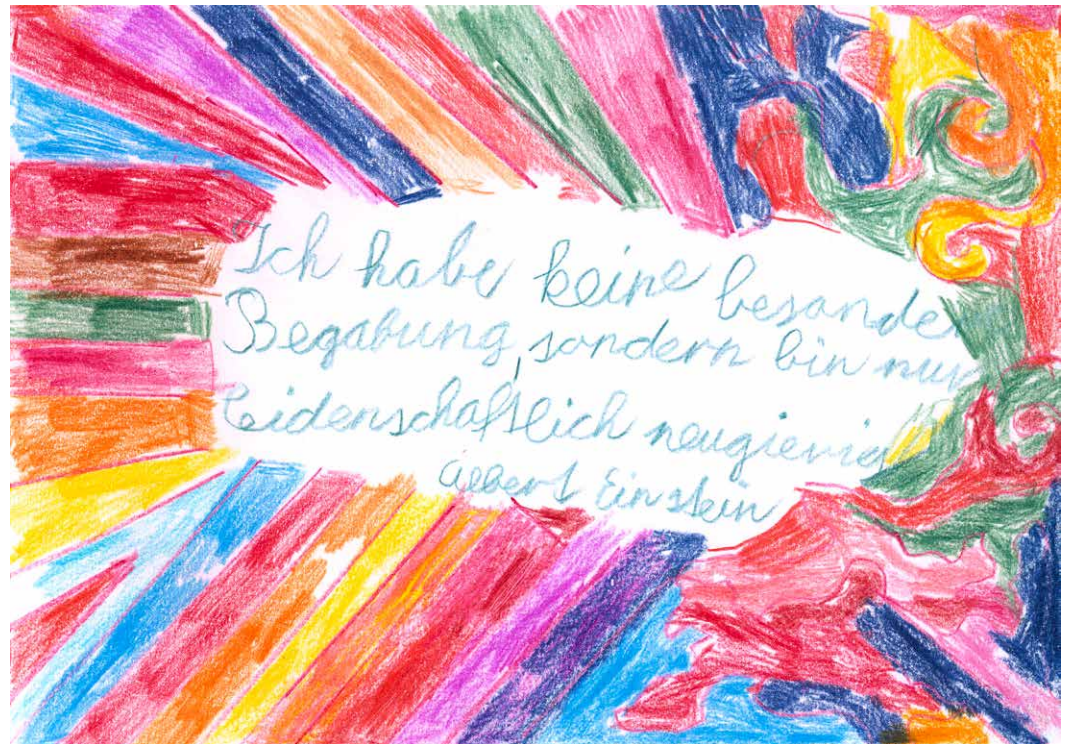 Ich habe keine besonde
Begabung, sondern bin nur
leidenschaftlich neugierig
Albert Einstein